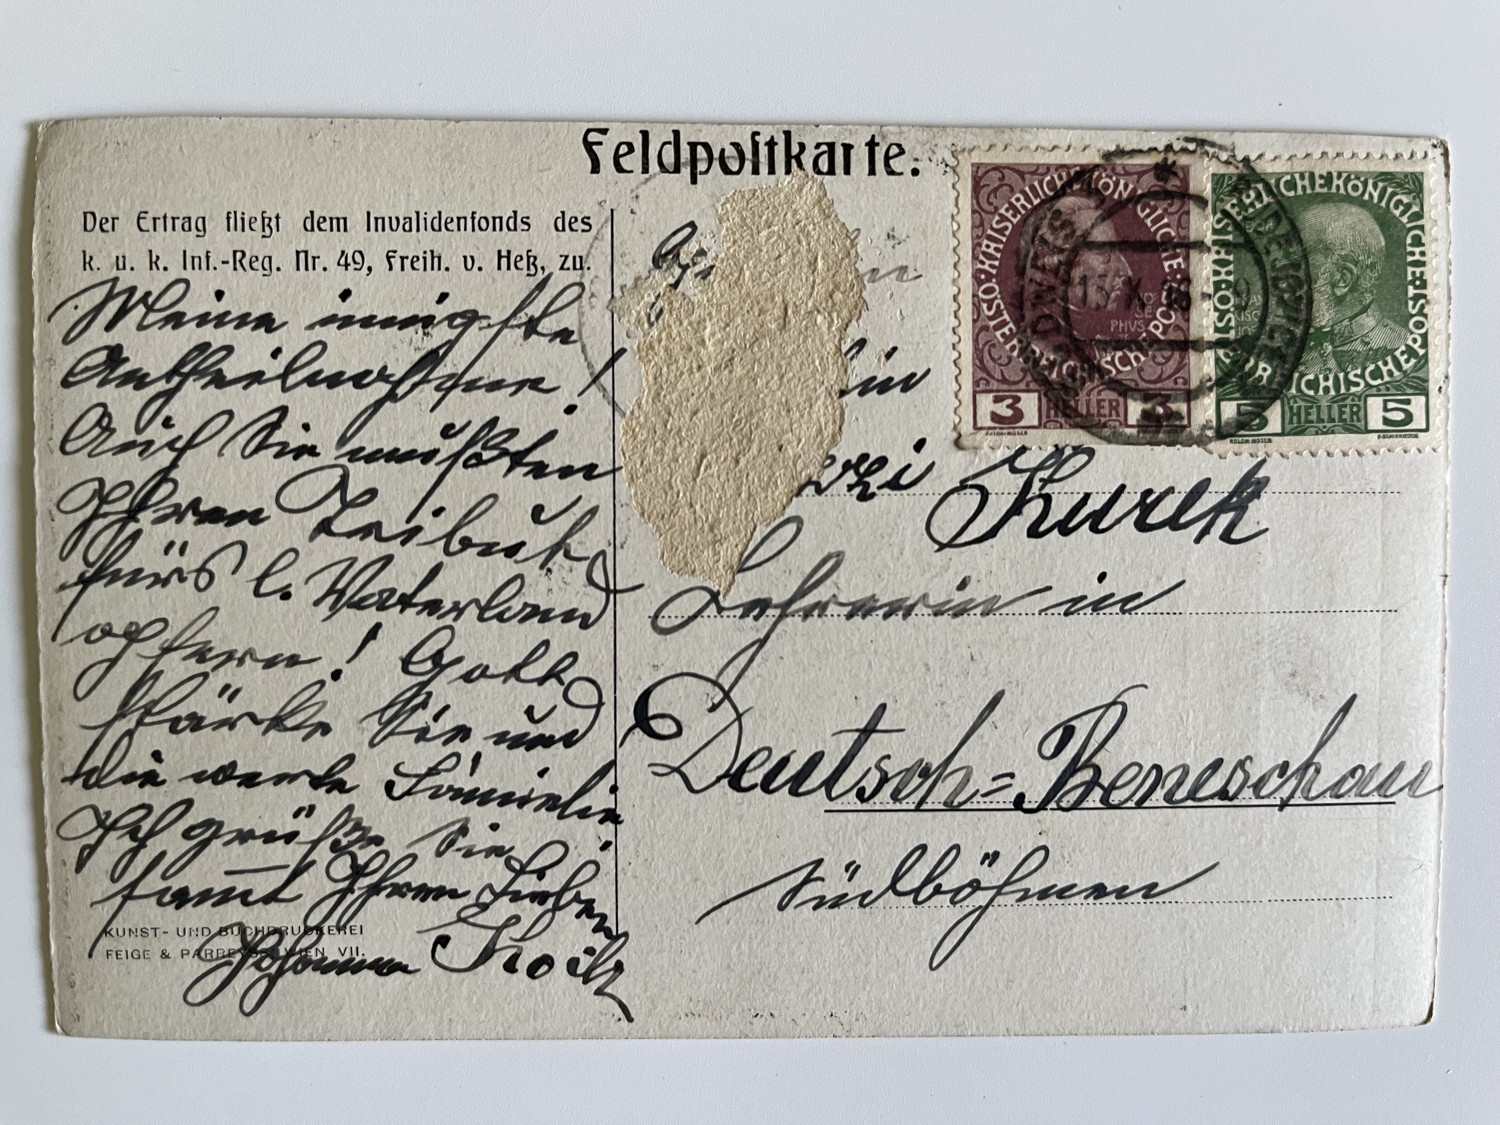 Feldpostkarte.
Der Ertrag fließt dem Invalidenfonds des
k. u. k. Inf.-Reg. Nr. 49, Freih. v. Heß, zu.
Meine innigste
Antheilnahme!
Auch Sie mußten
Ihren Tribut
fürs l. Vaterland
opfern! Gott
stärke Sie und
die werte Familie.
Ich grüße Sie
samt Ihren Lieben
Johanna
KUNST- UND BUCHDRUCKEREI
FEIGE & WIEN, VII.
KAISERLICHE KÖNIGLICHE ÖSTERREICHISCHE POST
3 HELLER 3
KAISERLICHE KÖNIGLICHE ÖSTERREICHISCHE POST
5 HELLER 5
Kurek
Lehrerin in
Deutsch=Beneschau
Südböhmen